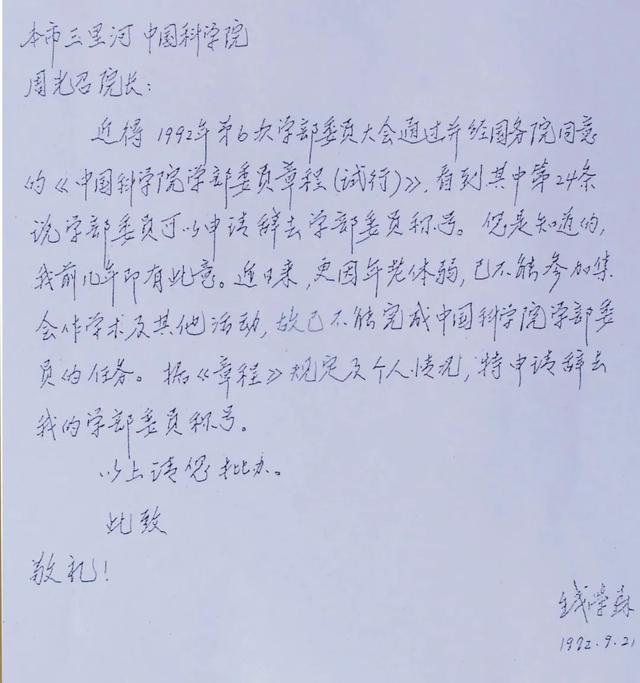 本市三里河 中国科学院
周光召院长：
近得1992年第6次学部委员大会通过并经国务院同意
的《中国科学院学部委员章程(试行)》，看到其中第24条
说学部委员可以申请辞去学部委员称号。您是知道的，
我前几年即有此意。近日来，更因年老体弱，已不能参加集
会作学术及其他活动，故已不能完成中国科学院学部委
员的任务。据《章程》规定及个人情况，特申请辞去
我的学部委员称号。
以上请您批办。
此致
敬礼！
钱学森
1992.9.21